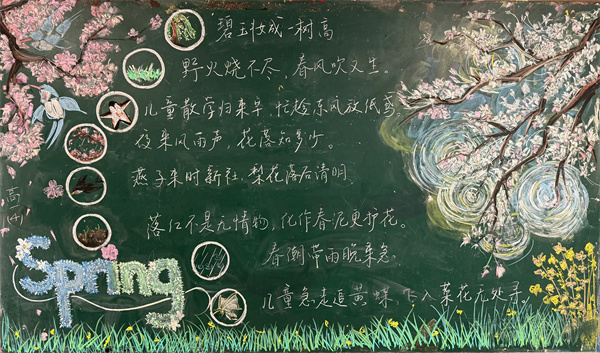 碧玉妆成一树高
野火烧不尽，春风吹又生。
儿童散学归来早，忙趁东风放纸鸢
夜来风雨声，花落知多少。
燕子来时新社，梨花落后清明
落红不是无情物，化作春泥更护花。
春潮带雨晚来急。
儿童急走追黄蝶，飞入菜花无处寻。
高
Spring